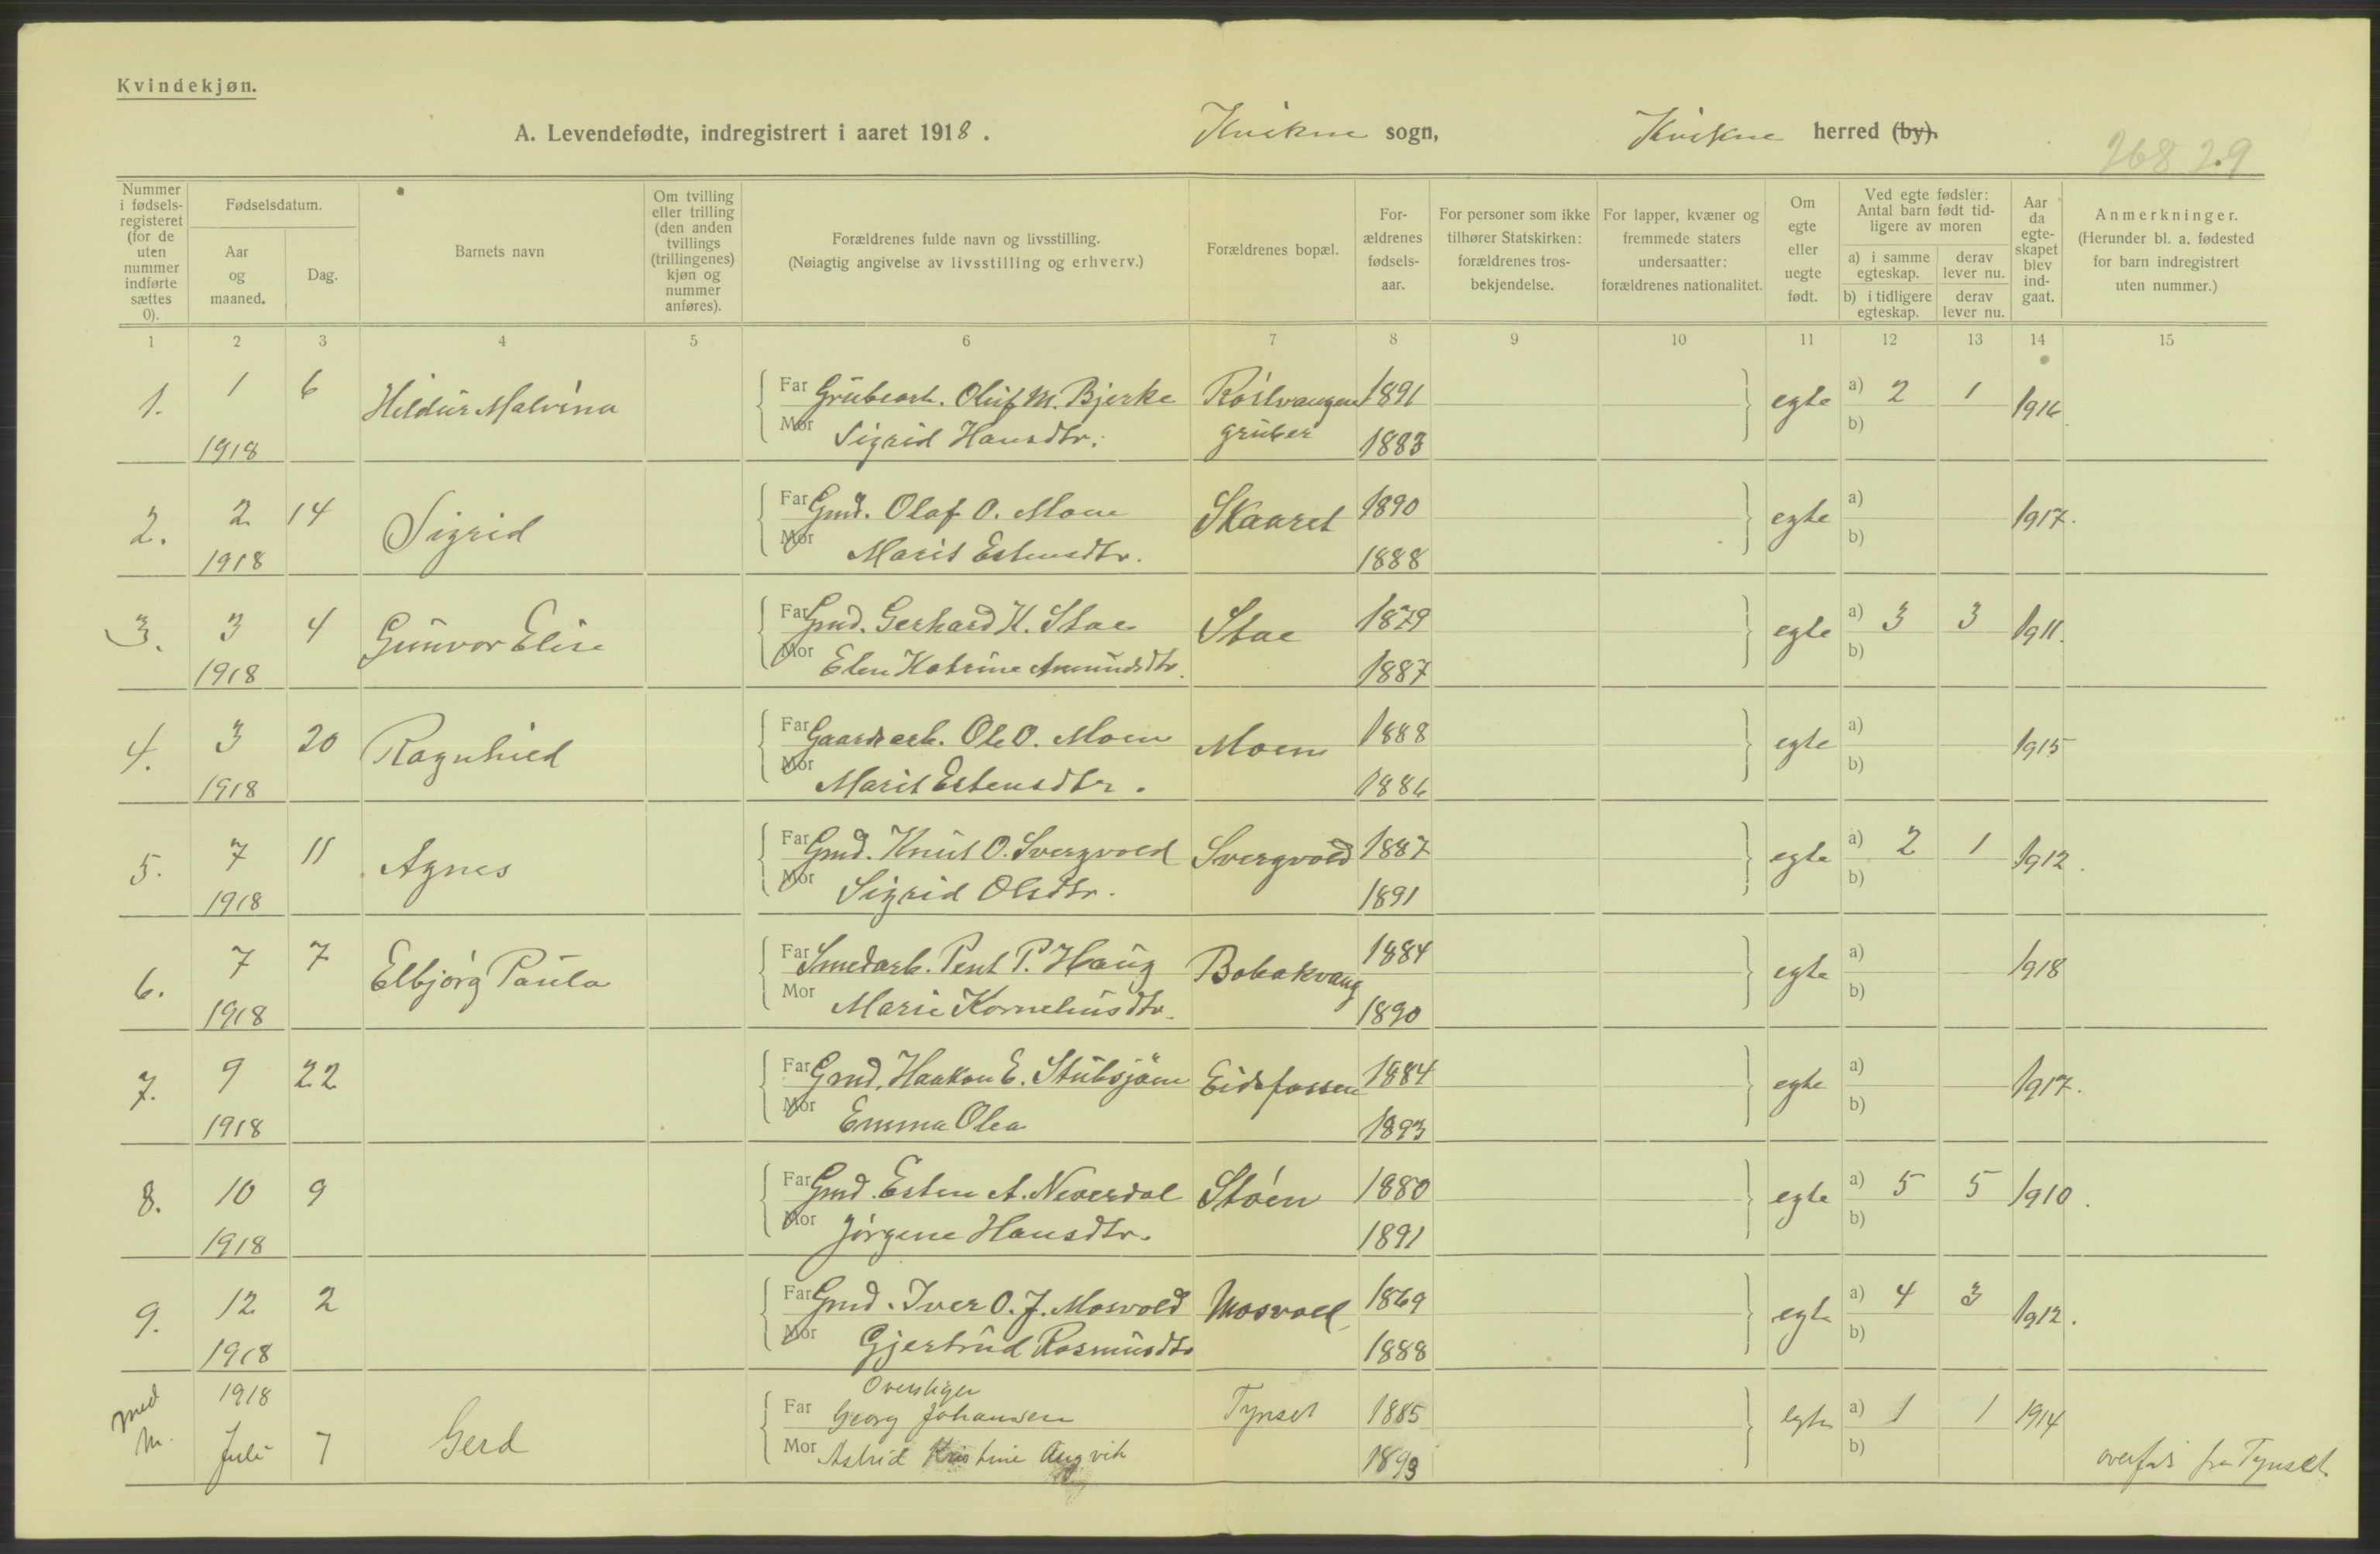 Kvindekjøn.
A. Levendefødte, indregistrert i aaret 1918. Kvikne sogn, Kvikne herred (by).
268 29
Nummer i fødsels-registeret (for de uten nummer indførte sættes 0).
Fødselsdatum.
Aar og maaned.
Dag.
Barnets navn
Om tvilling eller trilling (den anden tvillings (trillingenes) kjøn og nummer anføres).
Forældrenes fulde navn og livsstilling.
(Nøiagtig angivelse av livsstilling og erhverv.)
Forældrenes bopæl.
For-ældrenes fødsels-aar.
For personer som ikke tilhører Statskirken: forældrenes tros-bekjendelse.
For lapper, kvæner og fremmede staters undersaatter: forældrenes nationalitet.
Om egte eller uegte født.
Ved egte fødsler: Antal barn født tid-ligere av moren
a) i samme egteskap. derav lever nu.
b) i tidligere egteskap. derav lever nu.
Aar da egte-skapet blev ind-gaat.
Anmerkninger.
(Herunder bl. a. fødested for barn indregistrert uten nummer.)
1 2 3 4 5 6 7 8 9 10 11 12 13 14 15
1. 1 6 Hildur Malvina Far Grubearb. Oluf M. Bjerke Røstvangen 1891 egte a) 2 1 1916
1918 Mor Sigrid Hansdtr. gruber 1883 b)
2. 2 14 Sigrid Far Gmd. Olaf O. Moen Skaaret 1890 egte a) 1917.
1918 Mor Marit Estensdtr. 1888 b)
3. 3 4 Gunvor Elise Far Gmd. Gerhard K. Stae Stae 1879 egte a) 3 3 1911.
1918 Mor Elen Katrine Amundsdtr. 1887 b)
4. 3 20 Ragnhild Far Gaardarb. Ole O. Moen Moen 1888 egte a) 1915
1918 Mor Marit Estensdtr. 1886 b)
5. 7 11 Agnes Far Gmd. Knut O. Svergvold Svergvold 1887 egte a) 2 1 1912.
1918 Mor Sigrid Olsdtr. 1891 b)
6. 7 7 Elbjørg Paula Far Smedarb. Pent P. Haug Bobakvang 1884 egte a) 1918
1918 Mor Marie Korneliusdtr. 1890 b)
7. 9 22 Far Gmd. Haakon E. Stubsjøen Eidsfossen 1884 egte a) 1917.
1918 Mor Emma Olea 1893 b)
8. 10 9 Far Gmd. Esten A. Neverdal Støen 1880 egte a) 5 5 1910.
1918 Mor Jørgine Hansdtr. 1891 b)
9. 12 2 Far Gmd. Iver O. J. Mosvold Mosvold 1869 egte a) 4 3 1912.
1918 Mor Gjertrud Rasmusdtr 1888 b)
med 1918 Overstiger
m. Juli 7 Gerd Far Georg Johansen Tynset 1885 egte a) 1 1 1914
Mor Astrid Kristine Angvik 1893 b) overført fra Tynset